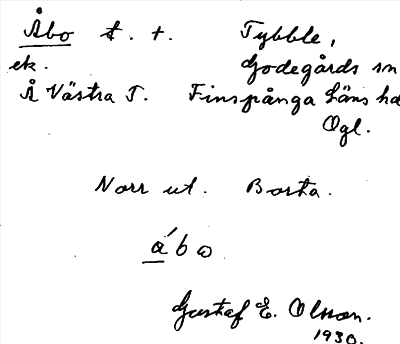 Åbo t. t. Tybble,
ek. Godegårds sn
Å Västra T. Finspånga Läns hd
Ögl.
Norr ut. Borta.
ábo
Gustaf E. Olsson.
1930.